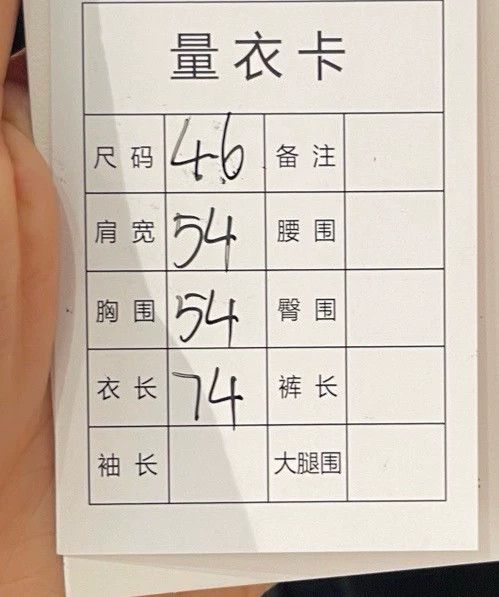 量衣卡
尺码 46 备注
肩宽 54 腰围
胸围 54 臀围
衣长 74 裤长
袖长 大腿围